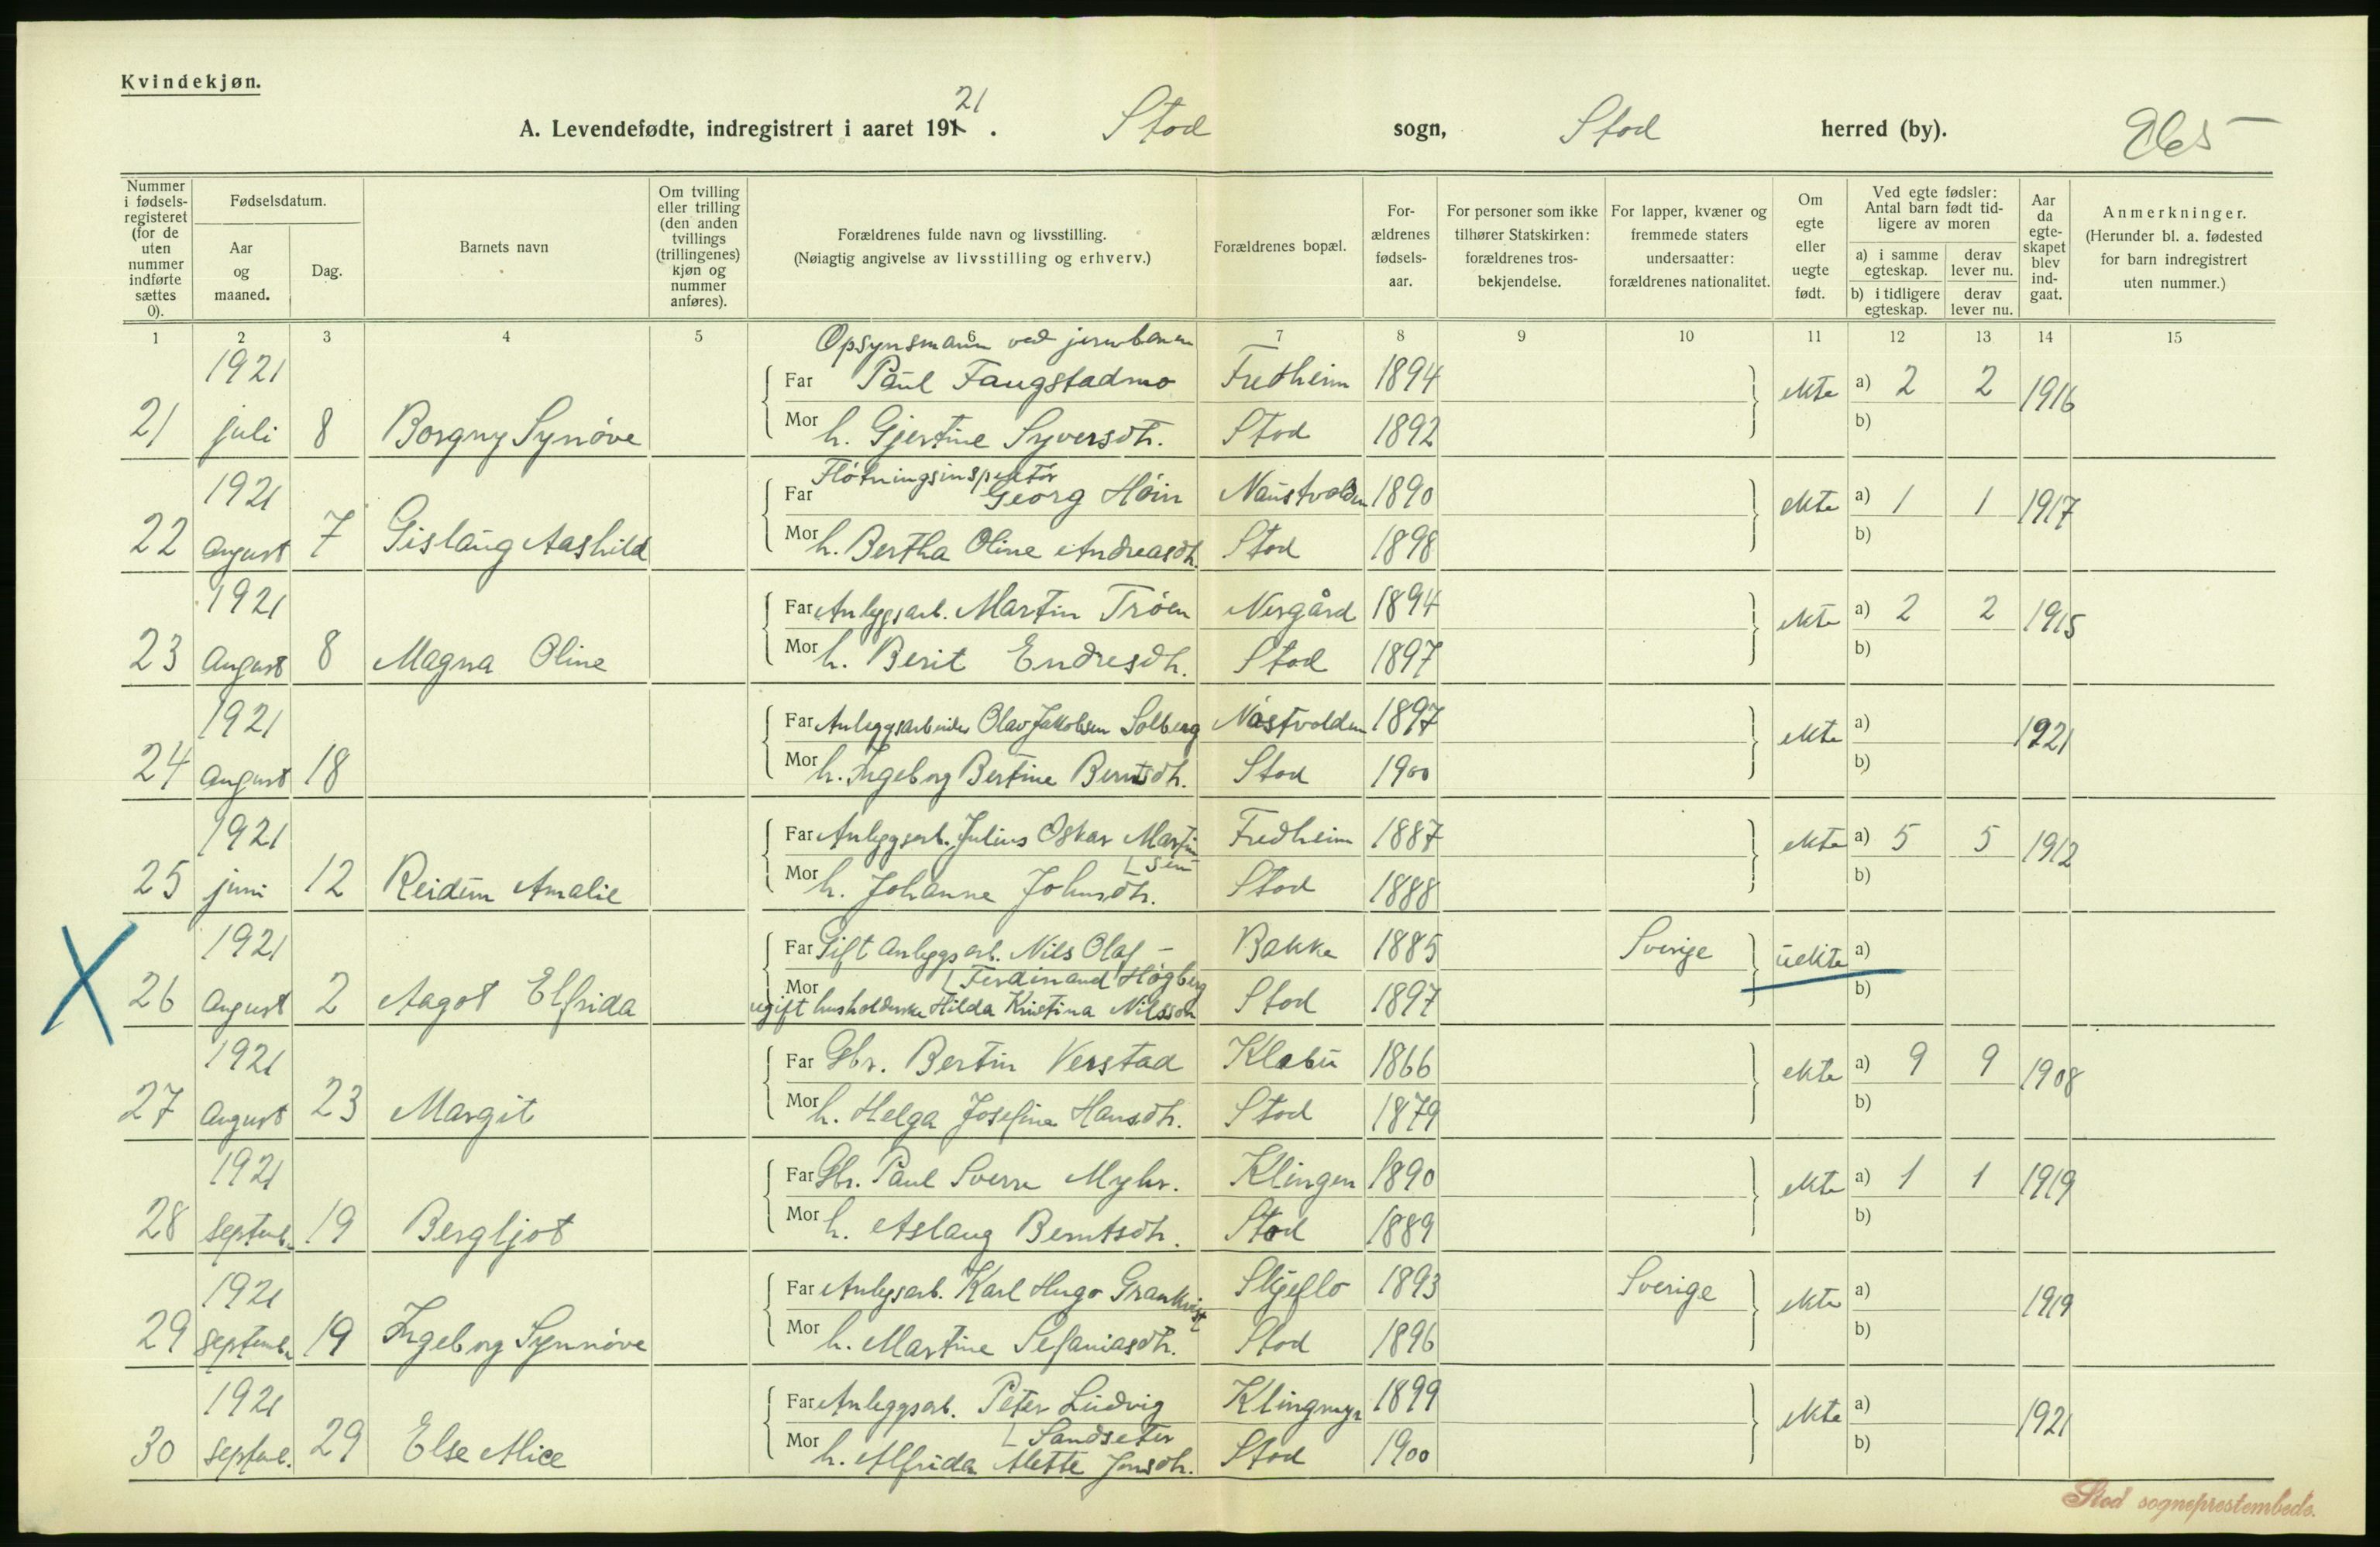 Kvindekjøn.
A. Levendefødte, indregistrert i aaret 191 21. Stod sogn, Stod herred (by).
Nummer i fødselsregisteret (for de uten nummer indførte sættes 0).
Fødselsdatum.
Aar og maaned.
Dag.
Barnets navn
Om tvilling eller trilling (den anden tvillings (trillingenes) kjøn og nummer anføres).
Forældrenes fulde navn og livsstilling.
(Nøiagtig angivelse av livsstilling og erhverv.)
Forældrenes bopæl.
Forældrenes fødselsaar.
For personer som ikke tilhører Statskirken: forældrenes trosbekjendelse.
For lapper, kvæner og fremmede staters undersaatter: forældrenes nationalitet.
Om egte eller uegte født.
Ved egte fødsler: Antal barn født tidligere av moren
a) i samme egteskap. derav lever nu.
b) i tidligere egteskap. derav lever nu.
Aar da egteskapet blev indgaat.
Anmerkninger.
(Herunder bl. a. fødested for barn indregistrert uten nummer.)
1 2 3 4 5 6 7 8 9 10 11 12 13 14 15
Opsynsmann ved jernbanen
1921 Far Paul Faugstadmo Fredheim 1894 ekte a) 2 2 1916
21 juli 8 Borgny Synøve Mor h. Gjertine Syversdt. Stod 1892 b)
Fløtningsinspektør
1921 Far Georg Høin Naustvolden 1890 ekte a) 1 1 1917
22 august 7 Gislaug Aashild Mor h. Bertha Oline Andreasdt. Stod 1898 b)
1921 Far Anleggsarb. Martin Trøen Nergård 1894 ekte a) 2 2 1915
23 august 8 Magna Oline Mor h. Berit Endresdt. Stod 1897 b)
1921 Far Anleggsarbeider Olav Jakobsen Solberg Nastvolden 1897 ekte a) 1921
24 august 18 Mor h. Ingeborg Bertine Berntsdt. Stod 1900 b)
1921 Far Anleggsarb. Julius Oskar Martin Fredheim 1887 ekte a) 5 5 1912
sen
25 juni 12 Reidun Amalie Mor h. Johanne Johnsdt. Stod 1888 b)
1921 Far Gift anleggsarb. Nils Olaf - Bakke 1885 Sverige uekte a)
Ferdinand Högberg
26 august 2 Aagot Elfrida Mor ugift husholderske Hilda Kristina Nilsson Stod 1897 b)
1921 Far Gbr. Bertin Verstad Klebu 1866 ekte a) 9 9 1908
27 august 23 Margit Mor h. Helga Josefina Hansdt. Stod 1879 b)
1921 Far Gbr. Paul Sverre Myhr. Klingen 1890 ekte a) 1 1 1919
28 septemb. 19 Bergljot Mor h. Aslaug Berntsdt. Stod 1889 b)
1921 Far Anlegsarb. Karl Hugo Grankvist 1893 Sverige ekte a) 1919
29 septemb. 19 Ingeborg Synnøve Mor h. Martine Sefaniasdt. Stod 1896 b)
1921 Far Anleggsarb. Peter Ludvig Klingmyr 1899 ekte a) 1921
Sandseter
30 septemb. 29 Else Alice Mor h. Alfrida Alette Jonsdt. Stod 1900 b)
Stod sogneprestembede.